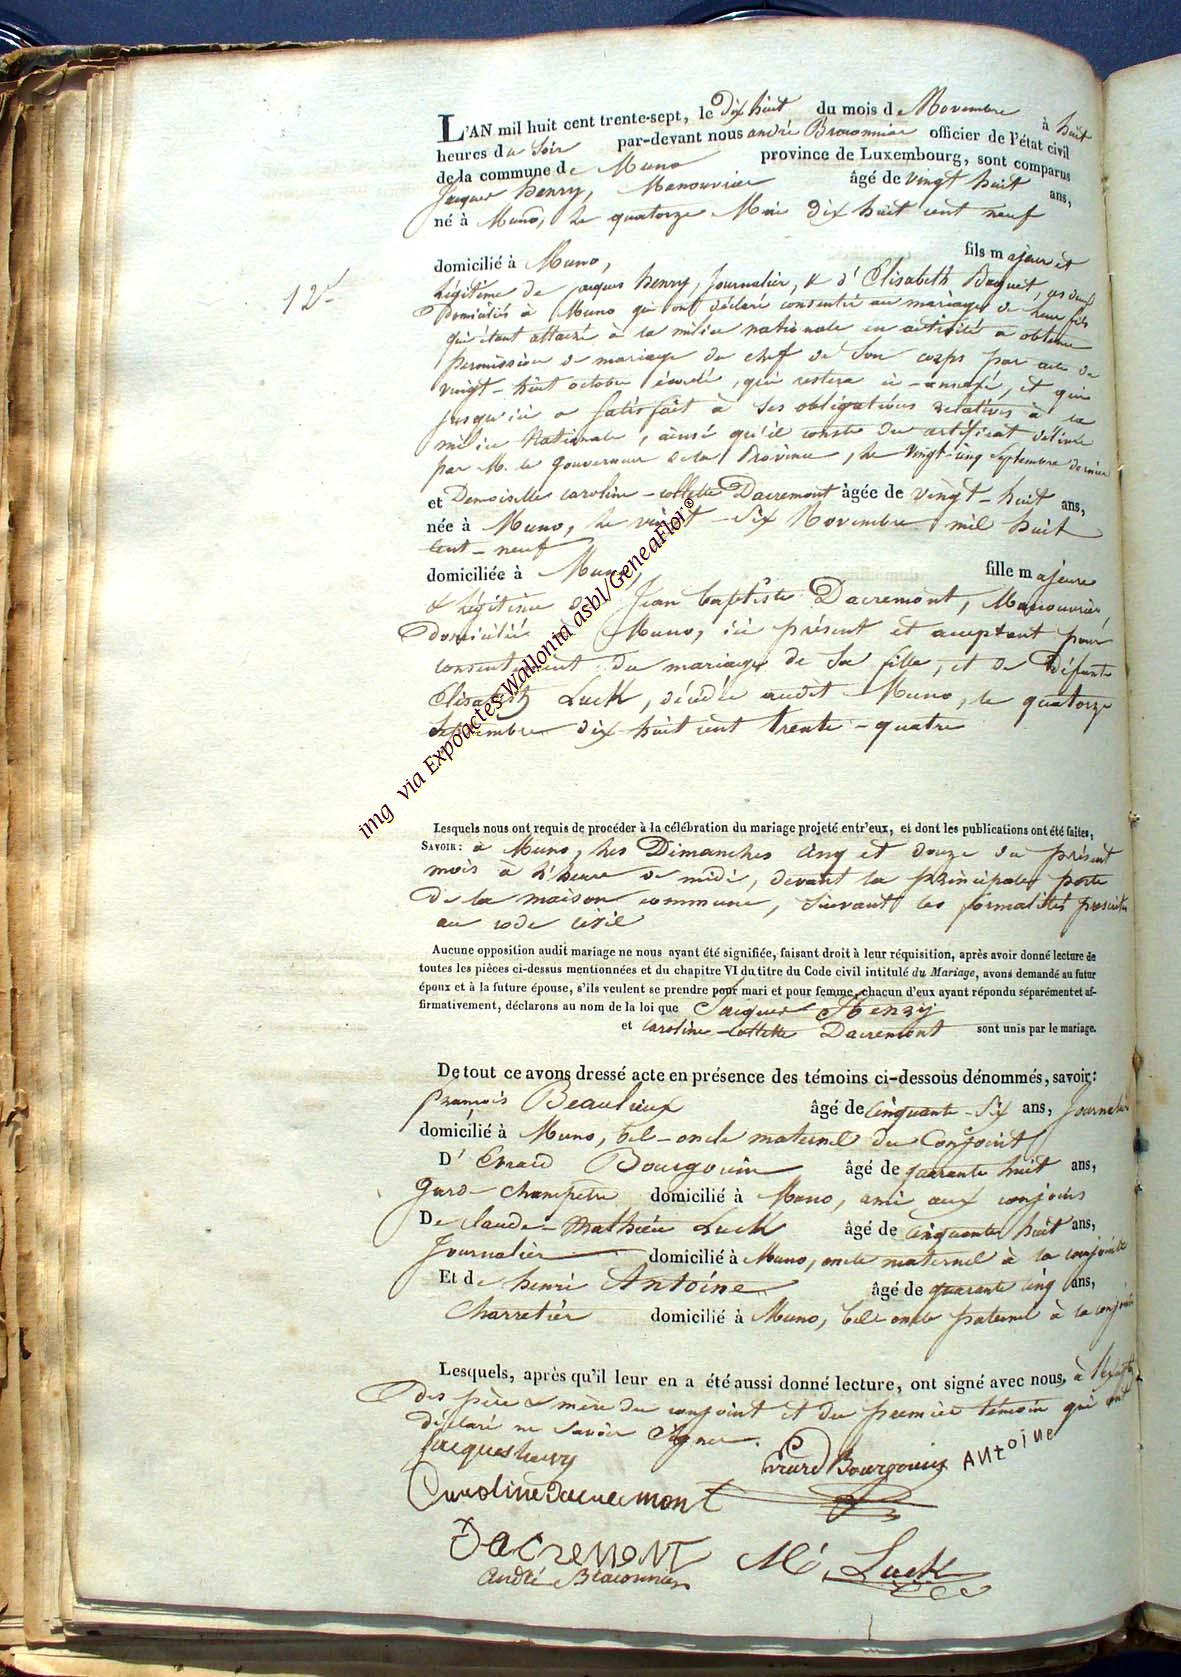 L'AN mil huit cent trente-sept, le Dix huit du mois de Novembre à huit
heures du Soir par-devant nous andré Braconnier officier de l'état civil
de la commune de Muno province de Luxembourg, sont comparus
Jacques henry, Manouvrier âgé de vingt huit ans,
né à Muno, le quatorze Mai dix huit cent neuf
domicilié à Muno, fils majeur et
12e
Légitime de jacques henry, Journalier, & d'Elisabeth Baquet, ces deux
Domiciliés à Muno qui ont déclaré consentir au mariage de leur fils
qui étant attaché à la milice nationale en activité a obtenu
permission de mariage du chef de son corps par acte du
vingt-huit octobre écoulé, qui restera ci-annexé, et qui
jusqu'ici a satisfait à ses obligations relatives à la
milice Nationale, ainsi qu'il conste du certificat délivré
par M. le gouverneur de la Province, le vingt-cinq Septembre dernier
et Demoiselle caroline-collette Dacremont âgée de vingt-huit ans,
née à Muno, le vingt-six Novembre mil huit
cent-neuf
domiciliée à Muno fille majeure
& Légitime de Jean baptiste Dacremont, Manouvrier,
domicilié à Muno, ici présent et acceptant pour
consentement du mariage de sa fille, et de Défunte
Elisabeth Luck, décédée audit Muno, le quatorze
Septembre dix huit cent trente-quatre
img via Expoactes-Wallonia asbl/GeneaFlor®
Lesquels nous ont requis de procéder à la célébration du mariage projeté entr'eux, et dont les publications ont été faites,
SAVOIR: à Muno, les Dimanches cinq et douze du présent
mois à l'heure de midi, devant la principale porte
de la maison commune, suivant les formalités prescrites
au code civil
Aucune opposition audit mariage ne nous ayant été signifiée, faisant droit à leur réquisition, après avoir donné lecture de
toutes les pièces ci-dessus mentionnées et du chapitre VI du titre du Code civil intitulé du Mariage, avons demandé au futur
époux et à la future épouse, s'ils veulent se prendre pour mari et pour femme, chacun d'eux ayant répondu séparément et af-
firmativement, déclarons au nom de la loi que Jacques Henry
et caroline-collette Dacremont sont unis par le mariage.
De tout ce avons dressé acte en présence des témoins ci-dessous dénommés, savoir:
françois Beaulieux âgé de cinquante-six ans, Journalier
domicilié à Muno, bel-oncle maternel du Conjoint
D'Evrard Bourgouin âgé de quarante huit ans,
gard-champetre domicilié à Muno, ami aux conjoins
De claude-Mathieu Luck âgé de cinquante huit ans,
Journalier domicilié à Muno, oncle maternel à la conjointe
Et de henri Antoine âgé de quarante cinq ans,
Charretier domicilié à Muno, bel oncle paternel à la conjointe
Lesquels, après qu'il leur en a été aussi donné lecture, ont signé avec nous, à l'exception
des père & mère du conjoint et du premier témoin qui ont
déclaré ne savoir signer.
jacques henry Evrard Bourgouin Antoine
Caroline dacremont
Dacremont M Luck
André Braconnier